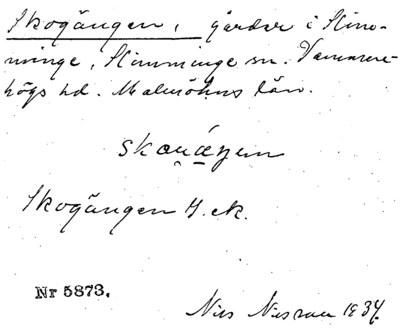 Skogängen, gårdar i Slim-
minge, Slimminge sn. Vemmen-
högs hd. Malmöhus län.
Skogängen H. ek.
Nr 5873.
Nils Nilsson 1934.